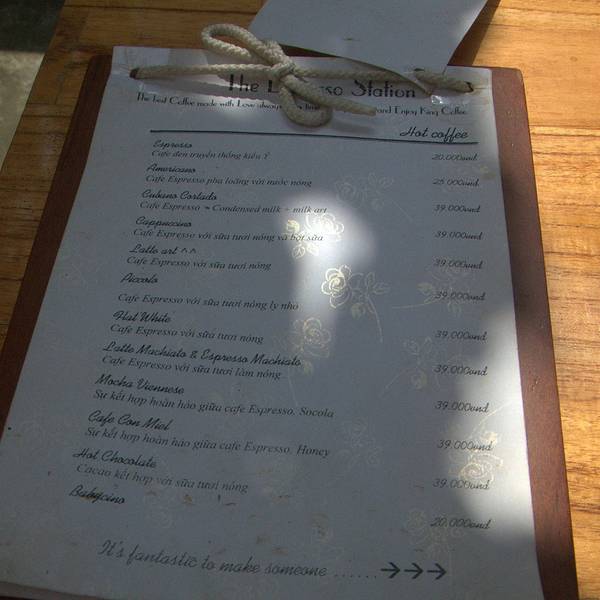 The Station
The best Coffee made with Love always and Enjoy King Coffee
Hot coffee
Espresso
Cafe đen truyền thống kiểu Ý 20.000vnd
Americano
Cafe Espresso pha loãng với nước nóng 25.000vnd
Cubano Cortado
Cafe Espresso + Condensed milk + milk art 39.000vnd
Cappuccino
Cafe Espresso với sữa tươi nóng và bột sữa 39.000vnd
Latte art ^^
Cafe Espresso với sữa tươi nóng 39.000vnd
Piccolo
Cafe Espresso với sữa tươi nóng ly nhỏ 39.000vnd
Flat White
Cafe Espresso với sữa tươi nóng 39.000vnd
Latte Machiato & Espresso Machiato
Cafe Espresso với sữa tươi làm nóng 39.000vnd
Mocha Viennese
Sự kết hợp hoàn hảo giữa cafe Espresso, Socola 39.000vnd
Cafe Con Miel
Sự kết hợp hoàn hảo giữa cafe Espresso, Honey 39.000vnd
Hot Chocolate
Cacao kết hợp với sữa tươi nóng 39.000vnd
Babycino 20.000vnd
It's fantastic to make someone ......→→→